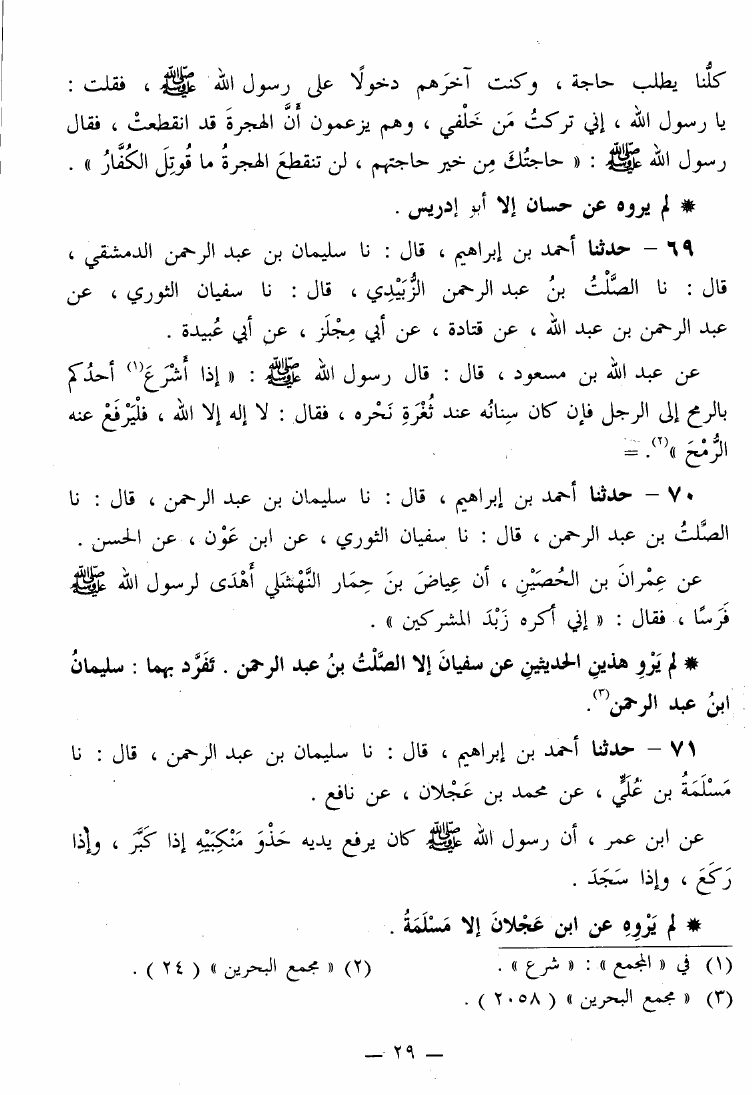 كلُّنا يطلب حاجة ، وكنت آخرَهم دخولًا على رسول الله ﷺ ، فقلت :
يا رسول الله ، إني تركتُ مَن خَلْفي ، وهم يزعمون أَنَّ الهجرةَ قد انقطعتْ ، فقال
رسول الله ﷺ : « حاجتُكَ مِن خير حاجتهم ، لن تنقطعَ الهجرةُ ما قُوتِلَ الكُفَّارُ » .
* لم يروه عن حسان إلا أبو إدريس .
٦٩ – حدثنا أحمد بن إبراهيم ، قال : نا سليمان بن عبد الرحمن الدمشقي ،
قال : نا الصَّلْتُ بنُ عبد الرحمن الزُّبَيْدِي ، قال : نا سفيان الثوري ، عن
عبد الرحمن بن عبد الله ، عن قتادة ، عن أبي مِجْلَز ، عن أبي عُبيدة .
عن عبد الله بن مسعود ، قال : قال رسول الله ﷺ : « إذا أَشْرَعَ(١) أحدُكم
بالرمح إلى الرجل فإن كان سِنانُه عند ثُغْرَةِ نَحْره ، فقال : لا إله إلا الله ، فلْيَرْفَعْ عنه
الرُّمْحَ »(٢). =
٧٠ – حدثنا أحمد بن إبراهيم ، قال : نا سليمان بن عبد الرحمن ، قال : نا
الصَّلتُ بن عبد الرحمن ، قال : نا سفيان الثوري ، عن ابن عَوْن ، عن الحسن .
عن عِمْرانَ بن الحُصَيْنِ ، أن عِياضَ بنَ حِمَار النَّهْشَلي أَهْدَى لرسول الله ﷺ
فَرَسًا ، فقال : « إني أكره زَبْدَ المشركين » .
* لم يَرْوِ هذينِ الحديثينِ عن سفيانَ إلا الصَّلْتُ بنُ عبد الرحمن . تَفَرَّد بهما : سليمانُ
ابنُ عبد الرحمن(٣).
٧١ – حدثنا أحمد بن إبراهيم ، قال : نا سليمان بن عبد الرحمن ، قال : نا
مَسْلَمَةُ بن عُلَيٍّ ، عن محمد بن عَجْلان ، عن نافع .
عن ابن عمر ، أن رسول الله ﷺ كان يرفع يديه حَذْوَ مَنْكِبَيْهِ إذا كَبَّرَ ، وإذا
رَكَعَ ، وإذا سَجَدَ .
* لم يَرْوِهِ عن ابن عَجْلانَ إلا مَسْلَمَةُ .
(١) في « المجمع » : « شرع » . (٢) « مجمع البحرين » ( ٢٤ ) .
(٣) « مجمع البحرين » ( ٢٠٥٨ ) .
— ٢٩ —